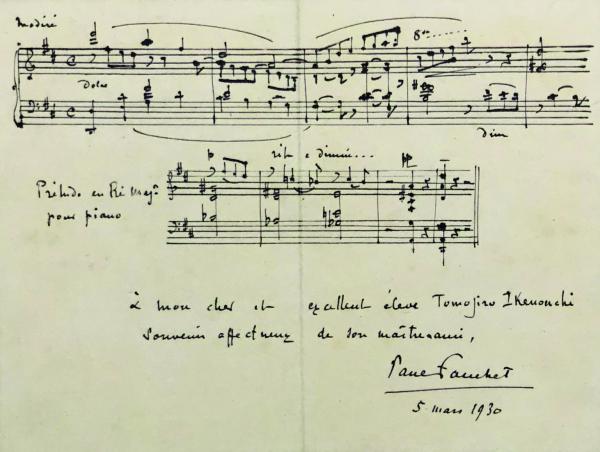 Modéré
8va
Dolce
dim
p rit e dimin...
pp
Prélude en Ré Majr
pour piano
à mon cher et excellent élève Tomojiro Ikenouchi
Souvenir affectueux de son maître ami,
Paul Fauchet
5 mars 1930